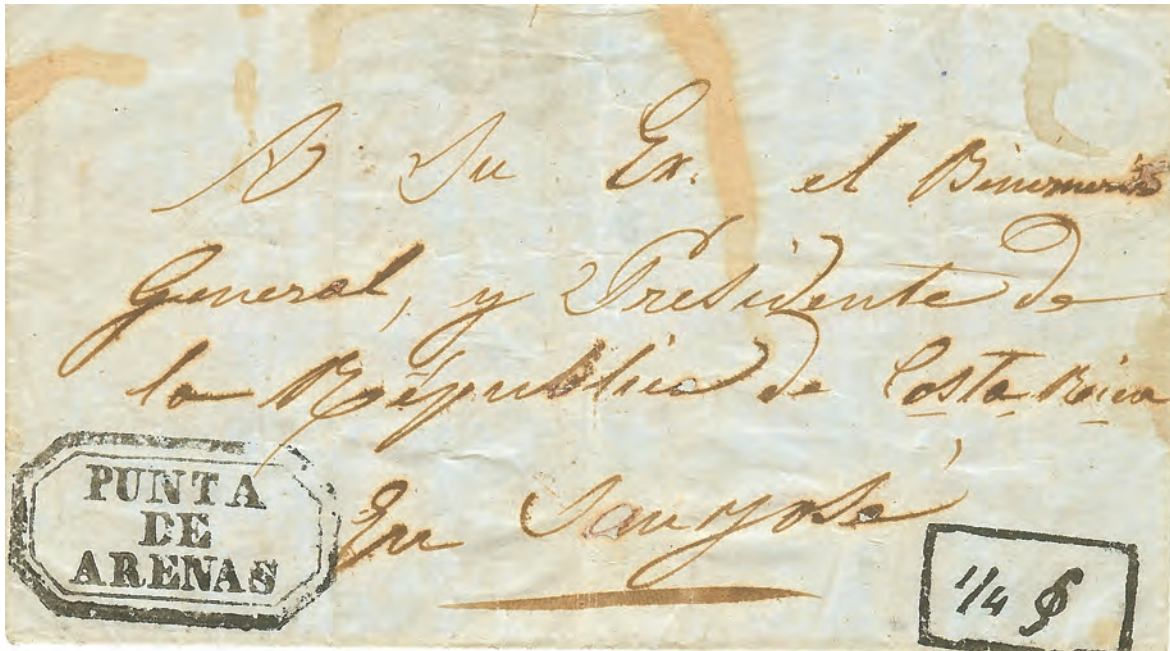 A Su Ex. el Benemerito
General, y Presidente de
la República de Costa Rica
En San José
PUNTA
DE
ARENAS
1/4 $